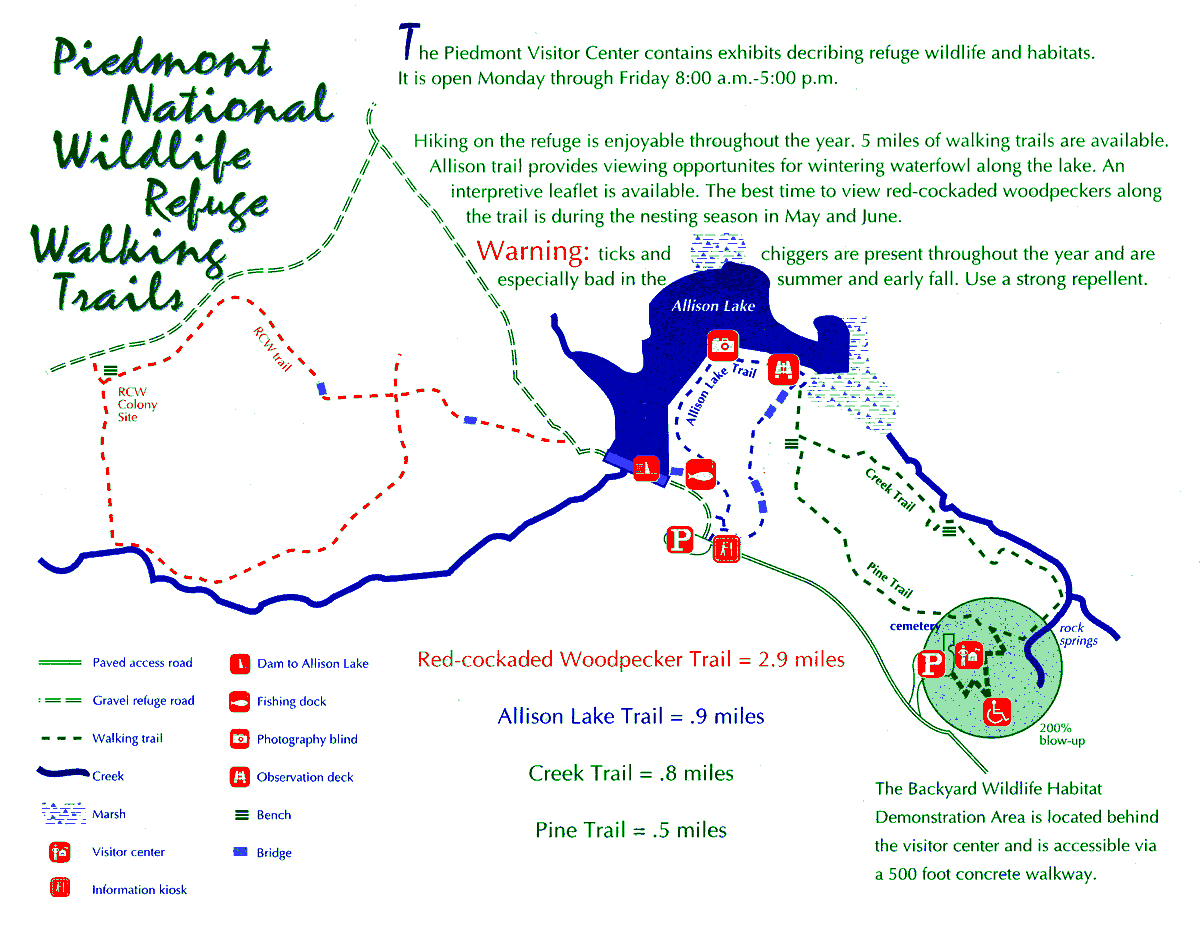 Piedmont
National
Wildlife
Refuge
Walking
Trails
The Piedmont Visitor Center contains exhibits decribing refuge wildlife and habitats.
It is open Monday through Friday 8:00 a.m.-5:00 p.m.
Hiking on the refuge is enjoyable throughout the year. 5 miles of walking trails are available.
Allison trail provides viewing opportunites for wintering waterfowl along the lake. An
interpretive leaflet is available. The best time to view red-cockaded woodpeckers along
the trail is during the nesting season in May and June.
Warning: ticks and chiggers are present throughout the year and are
especially bad in the summer and early fall. Use a strong repellent.
Allison Lake
RCW trail
Allison Lake Trail
RCW
Colony
Site
Creek Trail
P
Pine Trail
cemetery
rock
springs
P
200%
blow-up
Paved access road
Gravel refuge road
Walking trail
Creek
Marsh
Visitor center
Information kiosk
Dam to Allison Lake
Fishing dock
Photography blind
Observation deck
Bench
Bridge
Red-cockaded Woodpecker Trail = 2.9 miles
Allison Lake Trail = .9 miles
Creek Trail = .8 miles
Pine Trail = .5 miles
The Backyard Wildlife Habitat
Demonstration Area is located behind
the visitor center and is accessible via
a 500 foot concrete walkway.